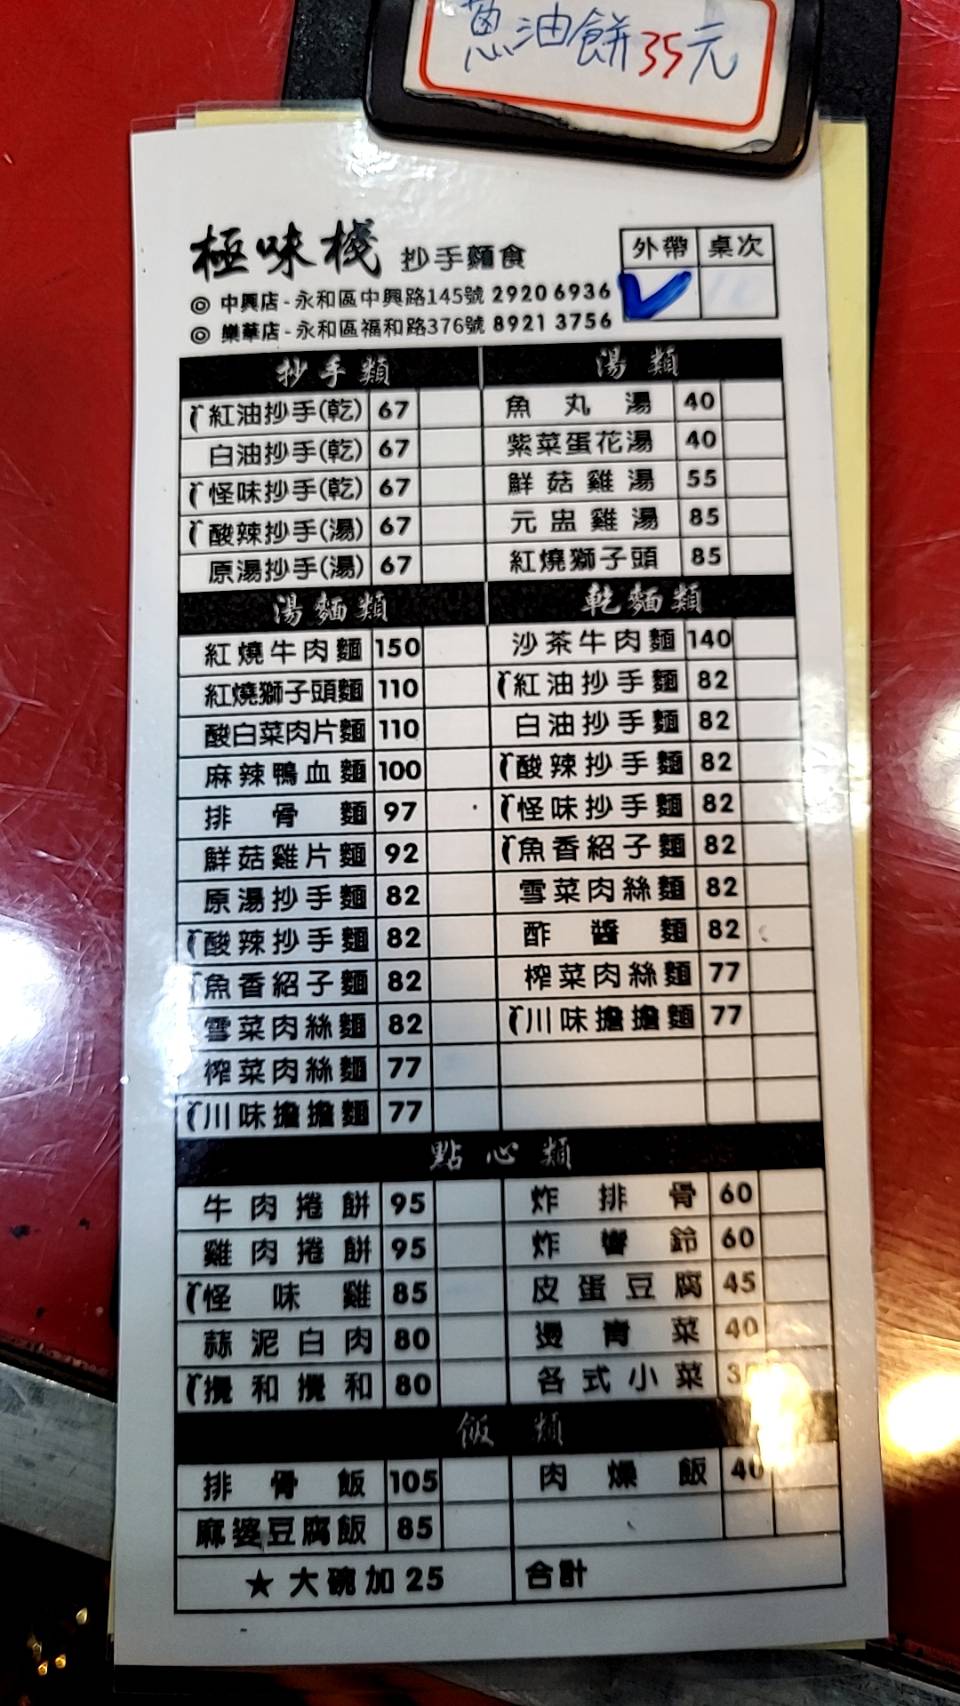 蔥油餅35元
極味棧 抄手麵食
外帶 桌次
◎ 中興店-永和區中興路145號 2920 6936
◎ 樂華店-永和區福和路376號 8921 3756
抄手類 湯類
紅油抄手(乾) 67 魚丸湯 40
白油抄手(乾) 67 紫菜蛋花湯 40
怪味抄手(乾) 67 鮮菇雞湯 55
酸辣抄手(湯) 67 元盅雞湯 85
原湯抄手(湯) 67 紅燒獅子頭 85
湯麵類 乾麵類
紅燒牛肉麵 150 沙茶牛肉麵 140
紅燒獅子頭麵 110 紅油抄手麵 82
酸白菜肉片麵 110 白油抄手麵 82
麻辣鴨血麵 100 酸辣抄手麵 82
排骨麵 97 怪味抄手麵 82
鮮菇雞片麵 92 魚香紹子麵 82
原湯抄手麵 82 雪菜肉絲麵 82
酸辣抄手麵 82 酢醬麵 82
魚香紹子麵 82 榨菜肉絲麵 77
雪菜肉絲麵 82 川味擔擔麵 77
榨菜肉絲麵 77
川味擔擔麵 77
點心類
牛肉捲餅 95 炸排骨 60
雞肉捲餅 95 炸響鈴 60
怪味雞 85 皮蛋豆腐 45
蒜泥白肉 80 燙青菜 40
攪和攪和 80 各式小菜
飯類
排骨飯 105 肉燥飯 40
麻婆豆腐飯 85
★大碗加25 合計